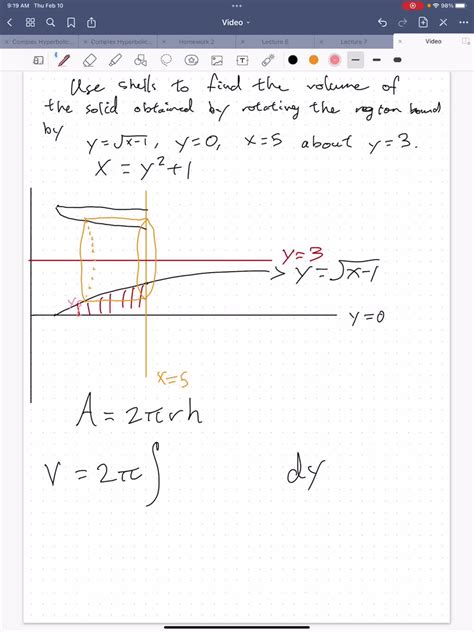 9:19 AM Thu Feb 10
98%
Video
Complex Hyperbolic...
Complex Hyperbolic...
Homework 2
Lecture 6
Lecture 7
Video
Use shells to find the volume of
the solid obtained by rotating the region bound
by
y=√x-1, y=0, x=5 about y=3.
x = y²+1
y=3
y=√x-1
y=0
x=5
A = 2πrh
V = 2π∫ dy